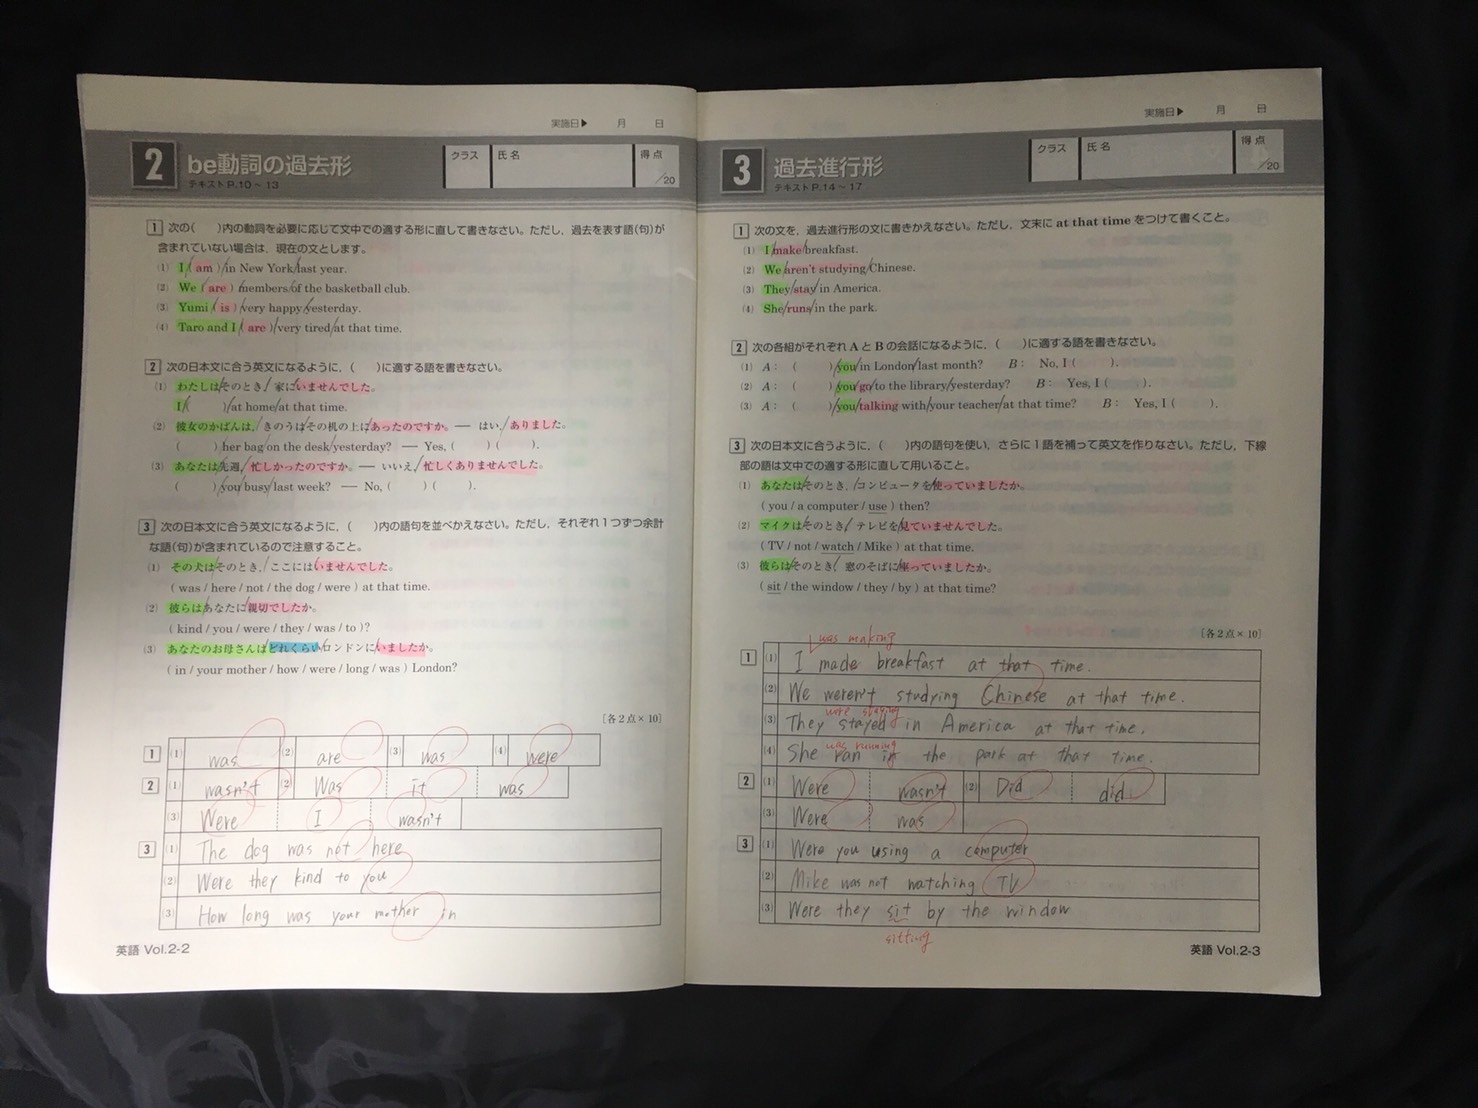 実施日▶ 月 日
2 be動詞の過去形
テキスト P.10～13
クラス 氏名 得点 /20
1 次の( )内の動詞を必要に応じて文中での適する形に直して書きなさい。ただし，過去を表す語(句)が
含まれていない場合は，現在の文とします。
(1) I ( am ) in New York last year.
(2) We ( are ) members of the basketball club.
(3) Yumi ( is ) very happy yesterday.
(4) Taro and I ( are ) very tired at that time.
2 次の日本文に合う英文になるように，( )に適する語を書きなさい。
(1) わたしはそのとき，家にいませんでした。
I ( ) at home at that time.
(2) 彼女のかばんは，きのうはその机の上にあったのですか。― はい，ありました。
( ) her bag on the desk yesterday? ― Yes, ( ) ( ).
(3) あなたは先週，忙しかったのですか。― いいえ，忙しくありませんでした。
( ) you busy last week? ― No, ( ) ( ).
3 次の日本文に合う英文になるように，( )内の語句を並べかえなさい。ただし，それぞれ1つずつ余計
な語(句)が含まれているので注意すること。
(1) その犬はそのとき，ここにはいませんでした。
( was / here / not / the dog / were ) at that time.
(2) 彼らはあなたに親切でしたか。
( kind / you / were / they / was / to )?
(3) あなたのお母さんはどれくらいロンドンにいましたか。
( in / your mother / how / were / long / was ) London?
[各2点×10]
1 (1) was (2) are (3) was (4) were
2 (1) wasn't (2) Was it was
(3) Were I wasn't
3 (1) The dog was not here
(2) Were they kind to you
(3) How long was your mother in
英語 Vol.2-2
実施日▶ 月 日
3 過去進行形
テキスト P.14～17
クラス 氏名 得点 /20
1 次の文を，過去進行形の文に書きかえなさい。ただし，文末に at that time をつけて書くこと。
(1) I make breakfast.
(2) We aren't studying Chinese.
(3) They stay in America.
(4) She runs in the park.
2 次の各組がそれぞれAとBの会話になるように，( )に適する語を書きなさい。
(1) A： ( ) you in London last month? B： No, I ( ).
(2) A： ( ) you go to the library yesterday? B： Yes, I ( ).
(3) A： ( ) you talking with your teacher at that time? B： Yes, I ( ).
3 次の日本文に合うように，( )内の語句を使い，さらに1語を補って英文を作りなさい。ただし，下線
部の語は文中での適する形に直して用いること。
(1) あなたはそのとき，コンピュータを使っていましたか。
( you / a computer / use ) then?
(2) マイクはそのとき，テレビを見ていませんでした。
( TV / not / watch / Mike ) at that time.
(3) 彼らはそのとき，窓のそばに座っていましたか。
( sit / the window / they / by ) at that time?
[各2点×10]
was making
1 (1) I made breakfast at that time.
(2) We weren't studying Chinese at that time.
were staying
(3) They stayed in America at that time.
was running
(4) She ran in the park at that time.
2 (1) Were wasn't (2) Did did
(3) Were was
3 (1) Were you using a computer
(2) Mike was not watching TV
(3) Were they sit by the window
sitting
英語 Vol.2-3